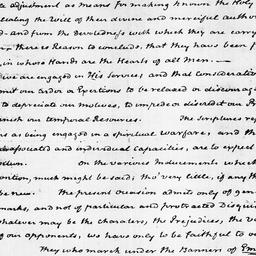 Adjustment as means for making known the Holy
the Will of their divine and merciful author
and from the Devotedness with which they are carry
there is Reason to conclude, that they have been
in whose Hands are the Hearts of all Men. —
are engaged in His Services, and that consideration
our Ardor or Exertions to be relaxed or discourag
to depreciate our motives, to impede or discredit our
our temporal Resources. The Scriptures rep
us as being engaged in a spiritual warfare, and th
associated and individual capacities, are to expect
On the various Inducements which
much might be said; tho' very little, if any th
be new. The present occasion admits only of gen
remarks, and not of particular and protracted Disqui
whatever may be the character, the Prejudices, the
of our opponents, we have only to be faithful to
They who march under the Banners of